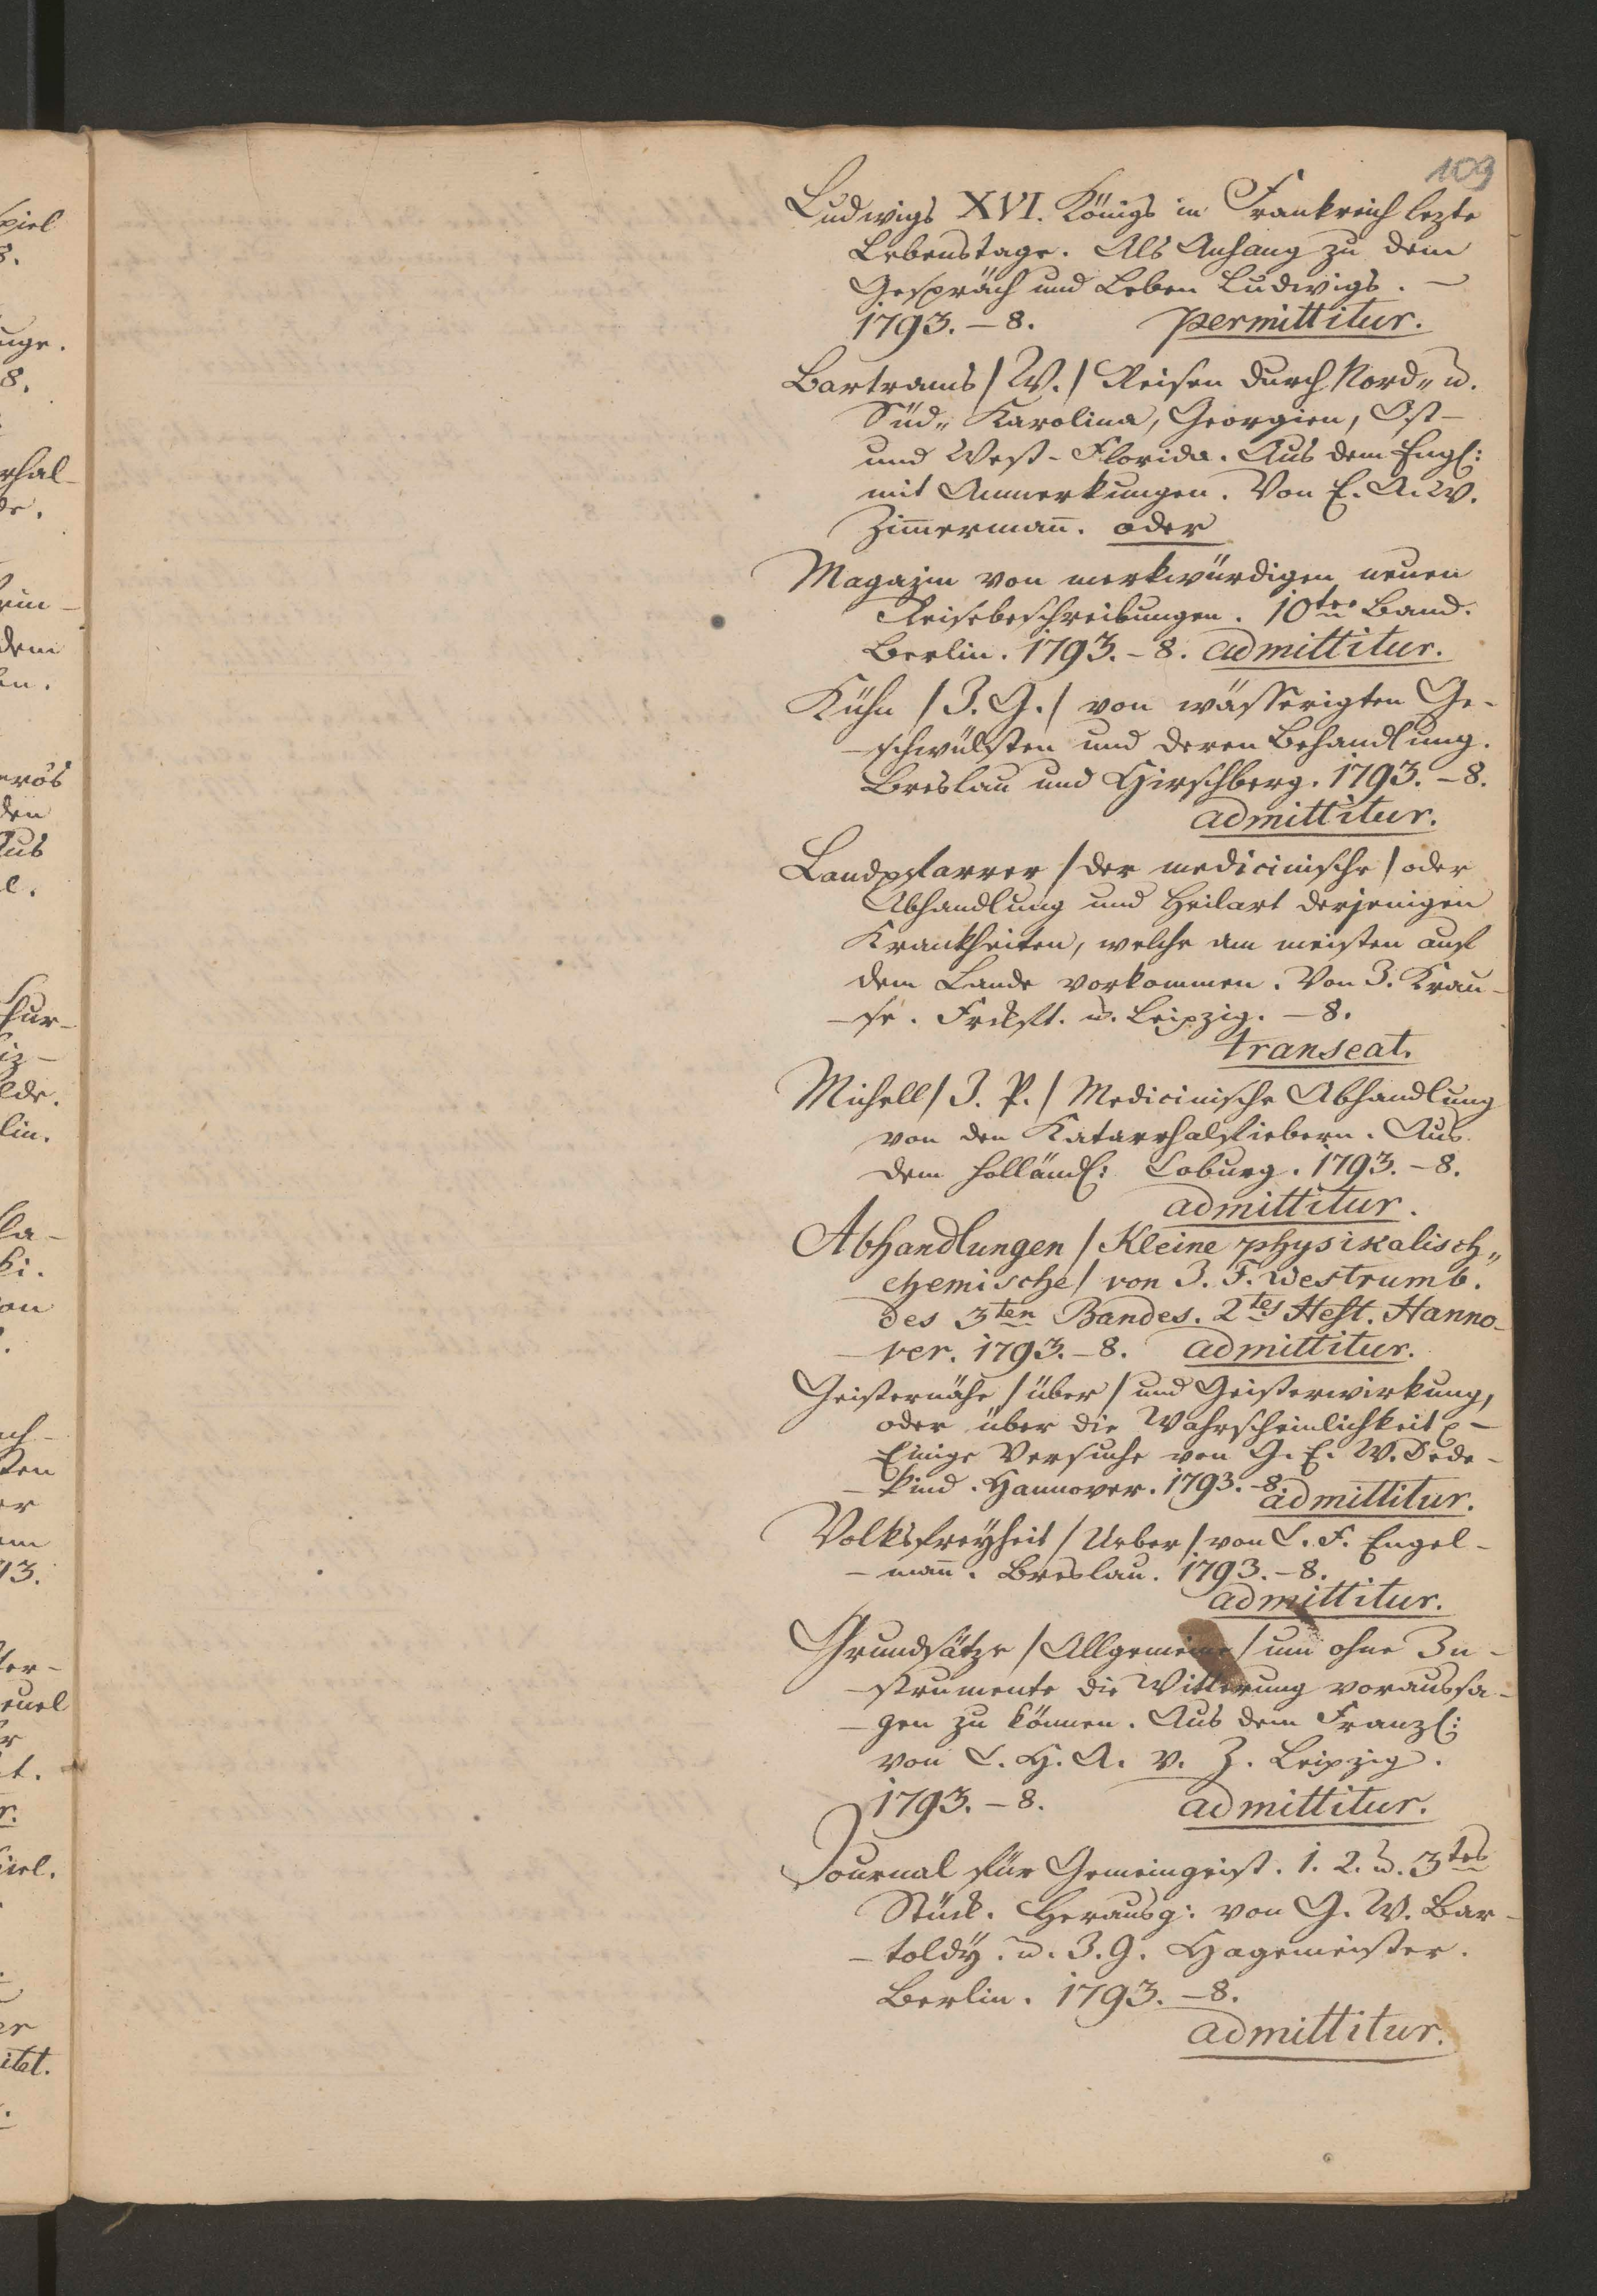 109
Ludwigs XVI. Königs in Frankreich lezte
Lebenstage. Als Anhang zu dem
Gespräch und Leben Ludwigs. —
1793. – 8. permittitur.
Bartrams / W. / Reisen durch Nord„ u.
Süd„ Karolina, Georgien, Ost-
und West-Florida. Aus dem Engl:
mit Anmerkungen. Von E. A. W.
Zim̄erman̄. oder
Magazin von merkwürdigen neuen
Reisebeschreibungen. 10ter Band.
Berlin. 1793. – 8. admittitur.
Kühn / J. G. / von wässerigten Ge-
-schwülsten und deren Behandlung.
Breslau und Hirschberg. 1793. – 8.
admittitur.
Landpfarrer / der medicinische / oder
Abhandlung und Heilart derjenigen
Krankheiten, welche am meisten auf
dem Lande vorkommen. Von J. Krau-
-se. Frckft. u. Leipzig. – 8.
transeat.
Michell / J. P. / Medicinische Abhandlung
von den Katarrhalfiebern. Aus
dem Holländ: Coburg. 1793. – 8.
admittitur.
Abhandlungen / Kleine physikalisch„
chemische / von J. F. Westrumb.
des 3ten Bandes. 2tes Heft. Hanno-
-ver. 1793. – 8. admittitur.
Geisternähe / über / und Geisterwirkung,
oder über die Wahrscheinlichkeit –
Einige Versuche von G. E. W. Dede-
-kind. Hannover. 1793. – 8.
admittitur.
Volksfreyheit / Ueber / von C. F. Engel-
-man̄. Breslau. 1793. – 8.
admittitur.
Grundsätze / Allgemeine / um ohne In-
-strumente die Witterung voraussa-
-gen zu können. Aus dem Franz:
von C. H. A. v. Z. Leipzig.
1793. – 8. admittitur.
Journal für Gemeingeist. 1. 2. u. 3tes
Stück. Herausg: von G. W. Bar-
-toldy. u. J. G. Hagemeister.
Berlin. 1793. – 8.
admittitur.